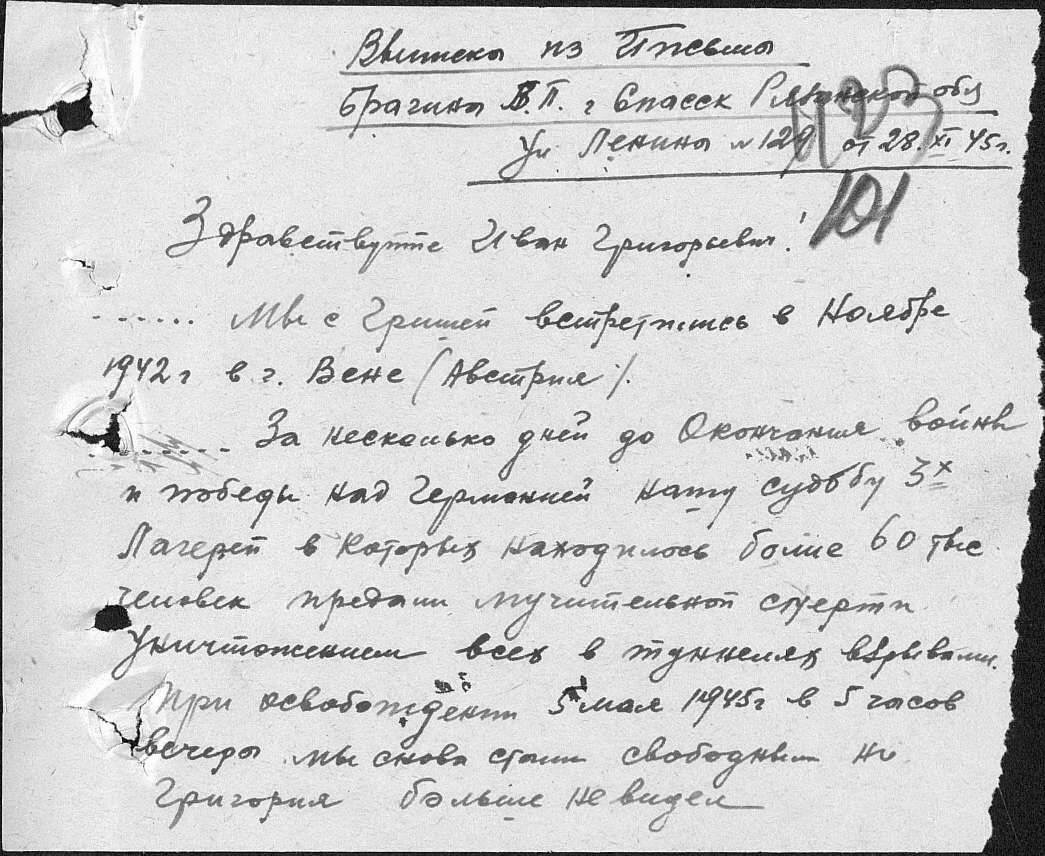 Выписка из Письма
Брагина В.П. г Спасск Рязанской обл
Ул Ленина № 129 от 28.XI 45г.
101
Здравствуйте Иван Григорьевич!
....... Мы с Гришей встретились в Ноябре
1942 г в г. Вене (Австрия).
....... За несколько дней до Окончания войны
и победы над Германией нашу судьбу 3х
Лагерей в которых находилось более 60 тыс
человек предали мучительной смерти
Уничтожением всех в туннелях взрывами.
При освобождении 5 мая 1945г в 5 часов
вечера мы снова стали свободными но
Григория больше не видел